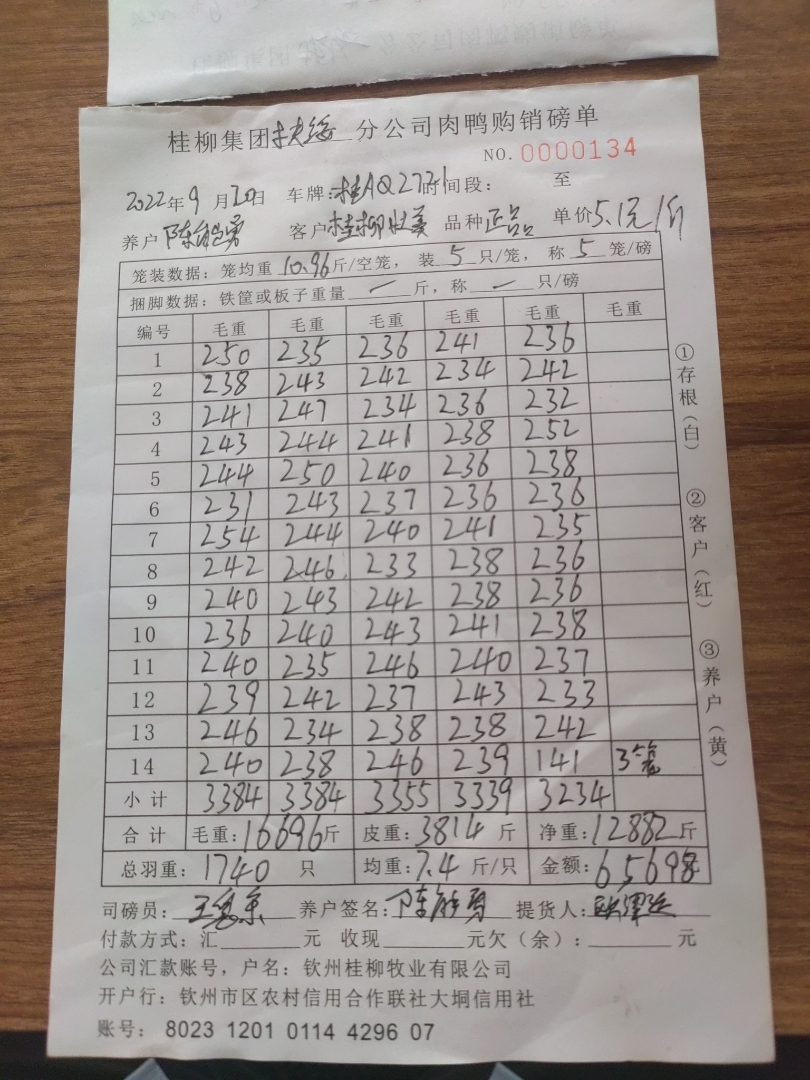 桂柳集团扶绥分公司肉鸭购销磅单
NO. 0000134
2022年9月20日 车牌:桂AQ2721时间段: 至
养户陈能勇 客户桂柳壮美 品种正品 单价5.1元/斤
笼装数据:笼均重10.96斤/空笼,装5只/笼,称5笼/磅
捆脚数据:铁筐或板子重量 一 斤,称 一 只/磅
编号 毛重 毛重 毛重 毛重 毛重 毛重
1 250 235 236 241 236
2 238 243 242 234 242
3 241 247 234 236 232
4 243 244 241 238 252
5 244 250 240 236 238
6 231 243 237 236 236
7 254 244 240 241 235
8 242 246 233 238 236
9 240 243 242 238 236
10 236 240 243 241 238
11 240 235 246 240 237
12 239 242 237 243 233
13 246 234 238 238 242
14 240 238 246 239 141 3笼
小计 3384 3384 3355 3339 3234
合计 毛重:16696斤 皮重:3814斤 净重:12882斤
总羽重:1740 只 均重:7.4斤/只 金额:65698
司磅员: 养户签名:陈能勇 提货人:
付款方式:汇 元 收现 元欠(余): 元
公司汇款账号,户名:钦州桂柳牧业有限公司
开户行:钦州市区农村信用合作联社大垌信用社
账号: 8023 1201 0114 4296 07
①存根(白)
②客户(红)
③养户(黄)